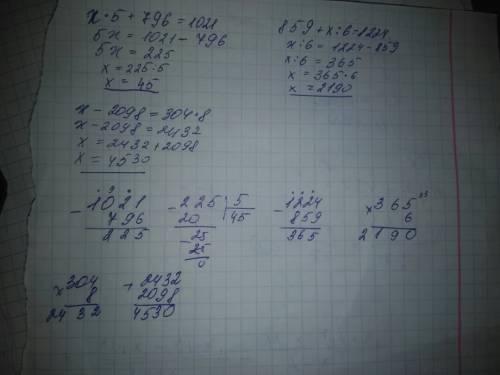 x · 5 + 796 = 1021
5x = 1021 - 796
5x = 225
x = 225 : 5
x = 45
859 + x : 6 = 1224
x : 6 = 1224 - 859
x : 6 = 365
x = 365 · 6
x = 2190
x - 2098 = 304 · 8
x - 2098 = 2432
x = 2432 + 2098
x = 4530
- 1021
796
225
- 225 | 5
20 45
- 25
25
0
- 1224
859
365
x 365
6
2190
x 304
8
2432
+ 2432
2098
4530